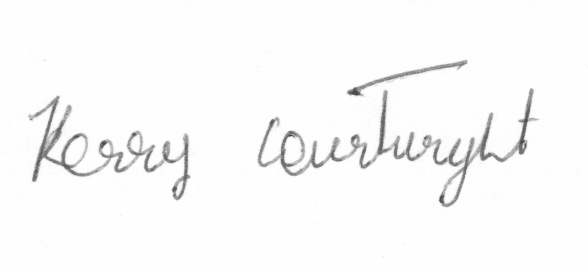 Kerry Courtwryht